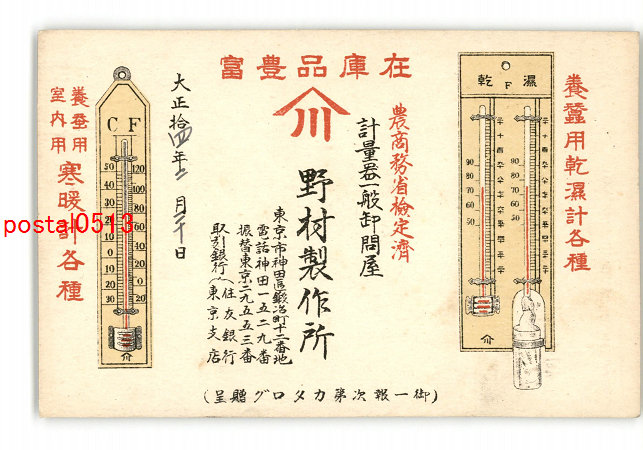 富豊品庫在
養蚕用乾濕計各種
農商務省檢定濟
計量器一般卸問屋
川
野村製作所
東京市神田區鍛冶町十二番地
電話神田一五二九番
振替東京二九五五三番
取引銀行 住友銀行
東京支店
大正拾四年二月 日
養蚕用
室内用
寒暖計各種
(呈贈グロタカ第次報一御)
乾 F 濕
90
80
70
60
50
90
80
70
60
50
C F
川
川
postal0513